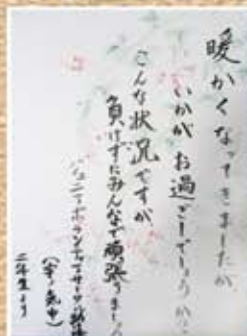 暖かくなってきましたが
いかがお過ごしでしょうか。
こんな状況ですが、
負けずにみんなで頑張りましょう
ジュニアボランティアサークル
二年生より